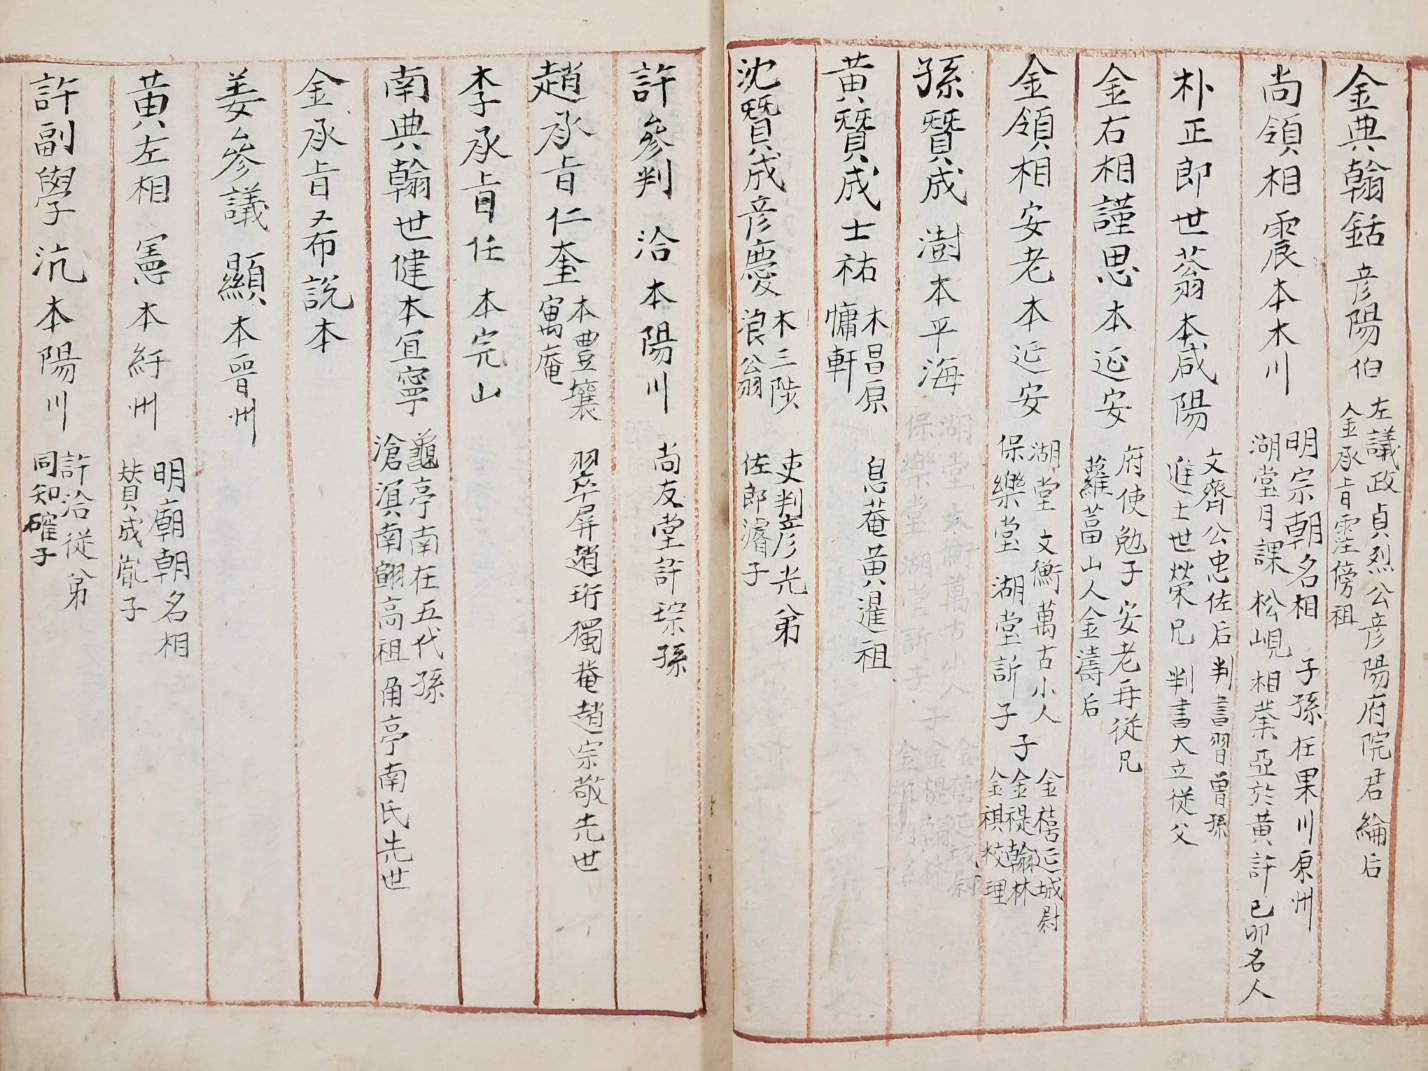 金典翰銛 彦陽伯 左議政貞烈公彦陽府院君綸后
金承㫖霔傍祖
尚領相震本木川 明宗朝名相 子孫在果川原州
湖堂月課松峴相業亞於黄許己卯名人
朴正郎世蓊本咸陽 文齊公忠佐后判書習曽孫
進士世榮兄 判書大立從父
金右相謹思本延安 府使勉子安老再從兄
蘿葍山人金濤后
金領相安老本延安 湖堂文衡萬古小人
保樂堂 湖堂訢子 子 金禧延城尉
金禔翰林
金祺校理
孫賛成 澍本平海
黄賛成士祐 本昌原
慵軒 息菴黄暹祖
沈賛成彦慶 本三陟
浪翁 吏判彦光弟
佐郎濬子
許參判 洽本陽川 尚友堂許琮孫
趙承㫖仁奎 本豊壤
寓庵 翠屏趙珩獨菴趙宗敬先世
李承㫖任 本完山
南典翰世健本宜寧 龜亭南在五代孫
滄溟南翩高祖甬亭南氏先世
金承㫖希説本
姜參議顯本晉州
黄左相 憲本紆州 明廟朝名相
賛成㣧子
許副學沆本陽川 許洽從弟
同知確子